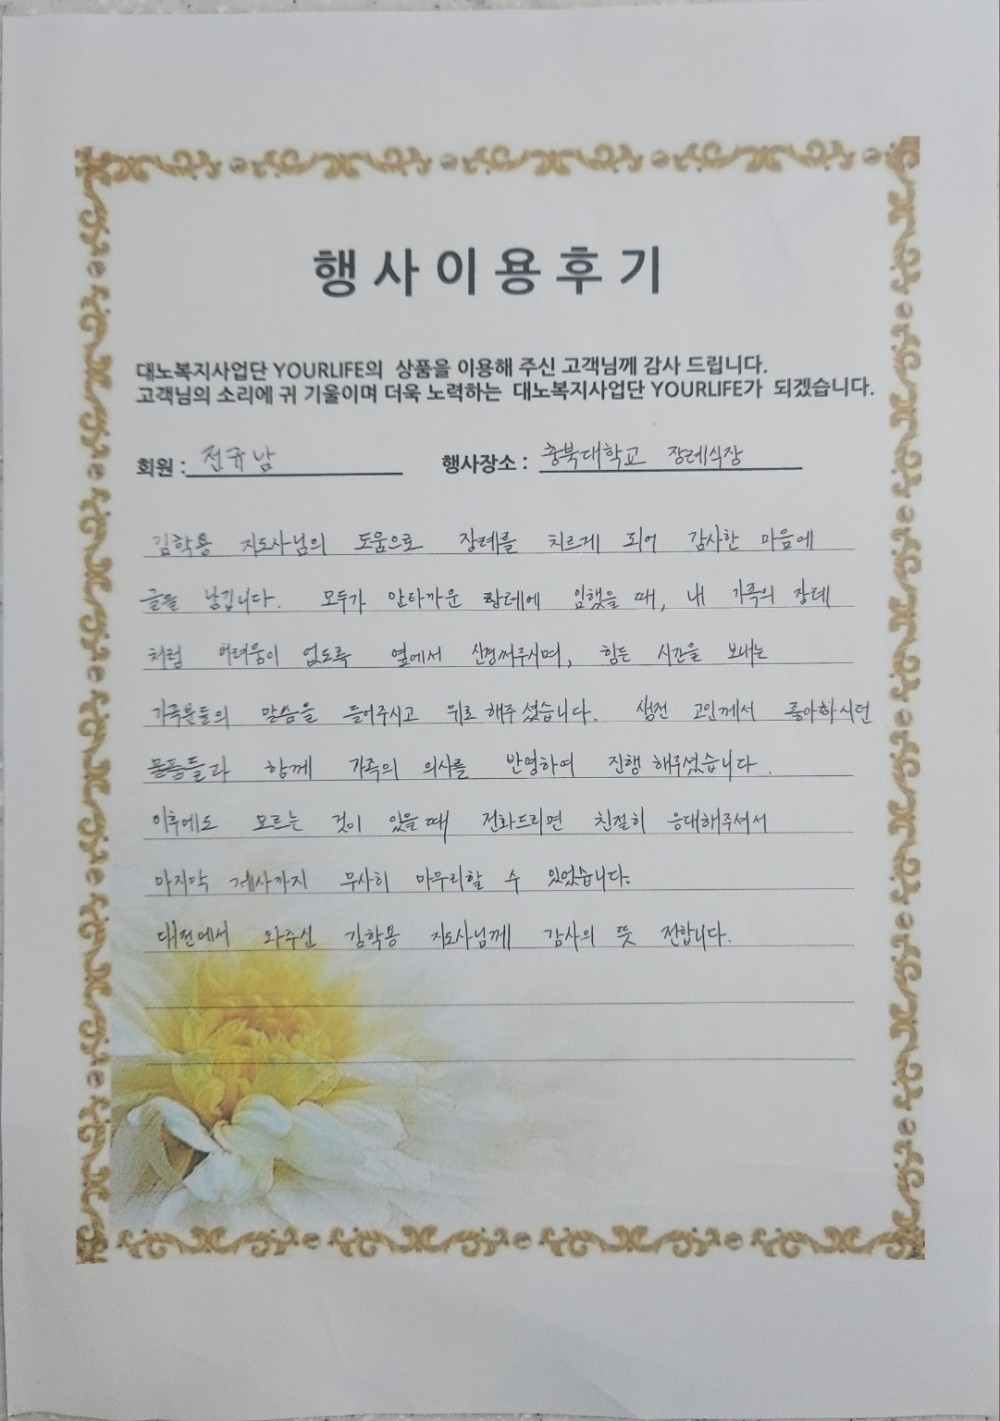 행사이용후기
대노복지사업단 YOURLIFE의 상품을 이용해 주신 고객님께 감사 드립니다.
고객님의 소리에 귀 기울이며 더욱 노력하는 대노복지사업단 YOURLIFE가 되겠습니다.
회원 : 전규남 행사장소 : 충북대학교 장례식장
김학용 지도사님의 도움으로 장례를 치르게 되어 감사한 마음에
글을 남깁니다. 모두가 안타까운 임했을 때, 내 가족의 장례
처럼 어려움이 없도록 옆에서 신경써주시며, 힘든 시간을 보내는
가족분들의 말씀을 들어주시고 위로 해주셨습니다. 생전 고인께서 좋아하시던
물품들과 함께 가족의 의사를 반영하여 진행 해주셨습니다.
이후에도 모르는 것이 있을 때 전화드리면 친절히 응대해주셔서
마지막 제사까지 무사히 마무리할 수 있었습니다.
대전에서 와주신 김학용 지도사님께 감사의 뜻 전합니다.